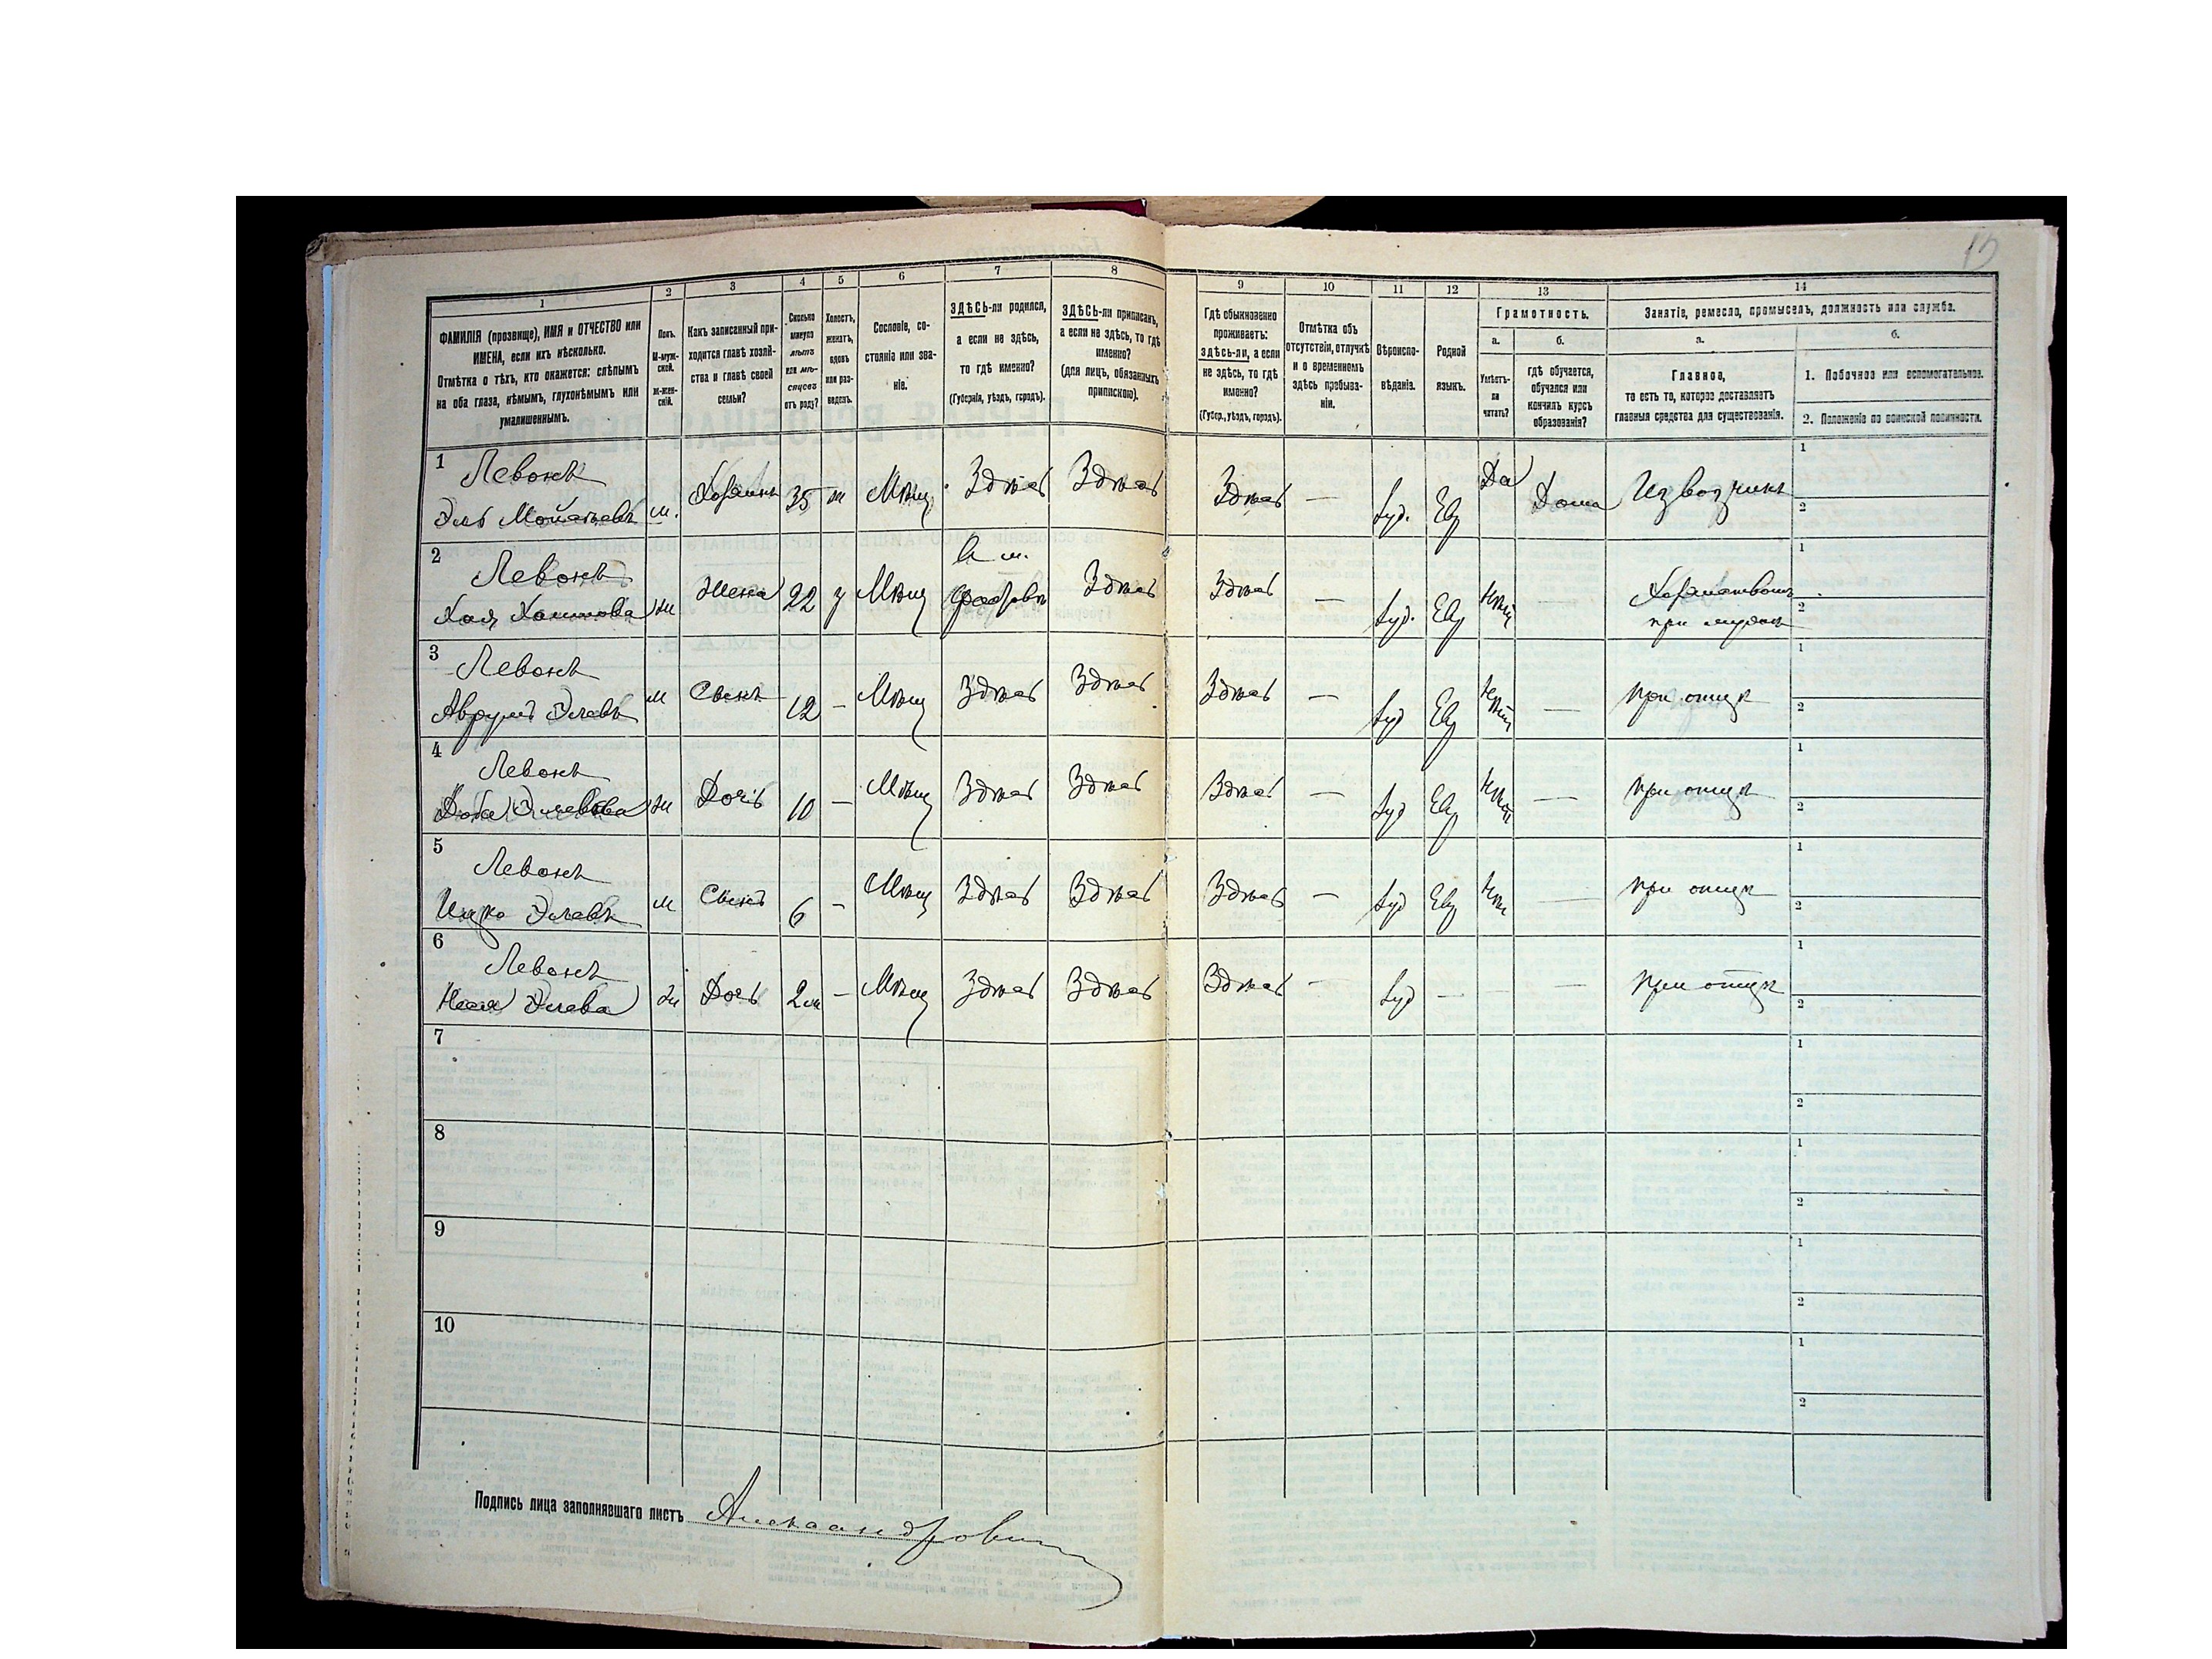 15
1 2 3 4 5 6 7 8 9 10 11 12 13 14
ФАМИЛІЯ (прозвище), ИМЯ и ОТЧЕСТВО или
ИМЕНА, если ихъ нѣсколько.
Отмѣтка о тѣхъ, кто окажется: слѣпымъ
на оба глаза, нѣмымъ, глухонѣмымъ или
умалишеннымъ.
Полъ.
М-муж-
ской.
Ж-жен-
скій.
Какъ записанный при-
ходится главѣ хозяй-
ства и главѣ своей
семьи?
Сколько
минуло
лѣтъ
или мѣ-
сяцевъ
отъ роду?
Холостъ,
женатъ,
вдовъ
или раз-
веденъ.
Сословіе, со-
стояніе или зва-
ніе.
ЗДѢСЬ-ли родился,
а если не здѣсь,
то гдѣ именно?
(Губернія, уѣздъ, городъ).
ЗДѢСЬ-ли приписанъ,
а если не здѣсь, то гдѣ
именно?
(для лицъ, обязанныхъ
припискою).
Гдѣ обыкновенно
проживаетъ:
здѣсь-ли, а если
не здѣсь, то гдѣ
именно?
(Губер., уѣздъ, городъ).
Отмѣтка объ
отсутствіи, отлучкѣ
и о временномъ
здѣсь пребыва-
ніи.
Вѣроиспо-
вѣданіе.
Родной
языкъ.
Грамотность.
а.
Умѣетъ-
ли
читать?
б.
гдѣ обучается,
обучался или
кончилъ курсъ
образованія?
Занятіе, ремесло, промыселъ, должность или служба.
а.
Главное,
то есть то, которое доставляетъ
главныя средства для существованія.
б.
1. Побочное или вспомогательное.
2. Положеніе по воинской повинности.
1 Левонъ
м. 35 Мѣщ. Здѣсь Здѣсь Здѣсь — Іуд. Евр Да Дома Извозчикъ
2 Левонъ
Хая ж Жена 22 Мѣщ Здѣсь Здѣсь — Іуд. Евр —
при мужѣ
3 Левонъ
Аврумъ Элевъ м Сынъ 12 — Мѣщ Здѣсь Здѣсь Здѣсь — Іуд Евр — при отцѣ
4 Левонъ
ж Дочь 10 — Мѣщ Здѣсь Здѣсь Здѣсь — Іуд Евр — при отцѣ
5 Левонъ
Ицко Элевъ м Сынъ 6 — Мѣщ Здѣсь Здѣсь Здѣсь — Іуд Евр — при отцѣ
6 Левонъ
Элева ж Дочь — Мѣщ Здѣсь Здѣсь Здѣсь — Іуд — — — при отцѣ
7
8
9
10
Подпись лица заполнявшаго листъ Александрович